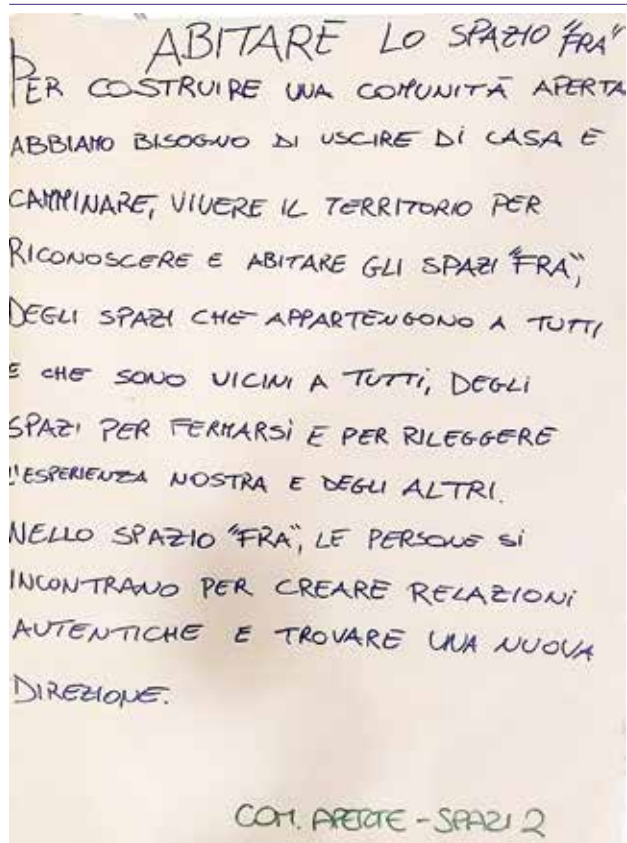 "ABITARE LO SPAZIO "FRA"
PER COSTRUIRE UNA COMUNITÀ APERTA
ABBIAMO BISOGNO DI USCIRE DI CASA E
CAMMINARE, VIVERE IL TERRITORIO PER
RICONOSCERE E ABITARE GLI SPAZI "FRA",
DEGLI SPAZI CHE APPARTENGONO A TUTTI
E CHE SONO VICINI A TUTTI, DEGLI
SPAZI PER FERMARSI E PER RILEGGERE
L'ESPERIENZA NOSTRA E DEGLI ALTRI.
NELLO SPAZIO "FRA", LE PERSONE SI
INCONTRANO PER CREARE RELAZIONI
AUTENTICHE E TROVARE UNA NUOVA
DIREZIONE.
COM. APERTE - SPAZI 2